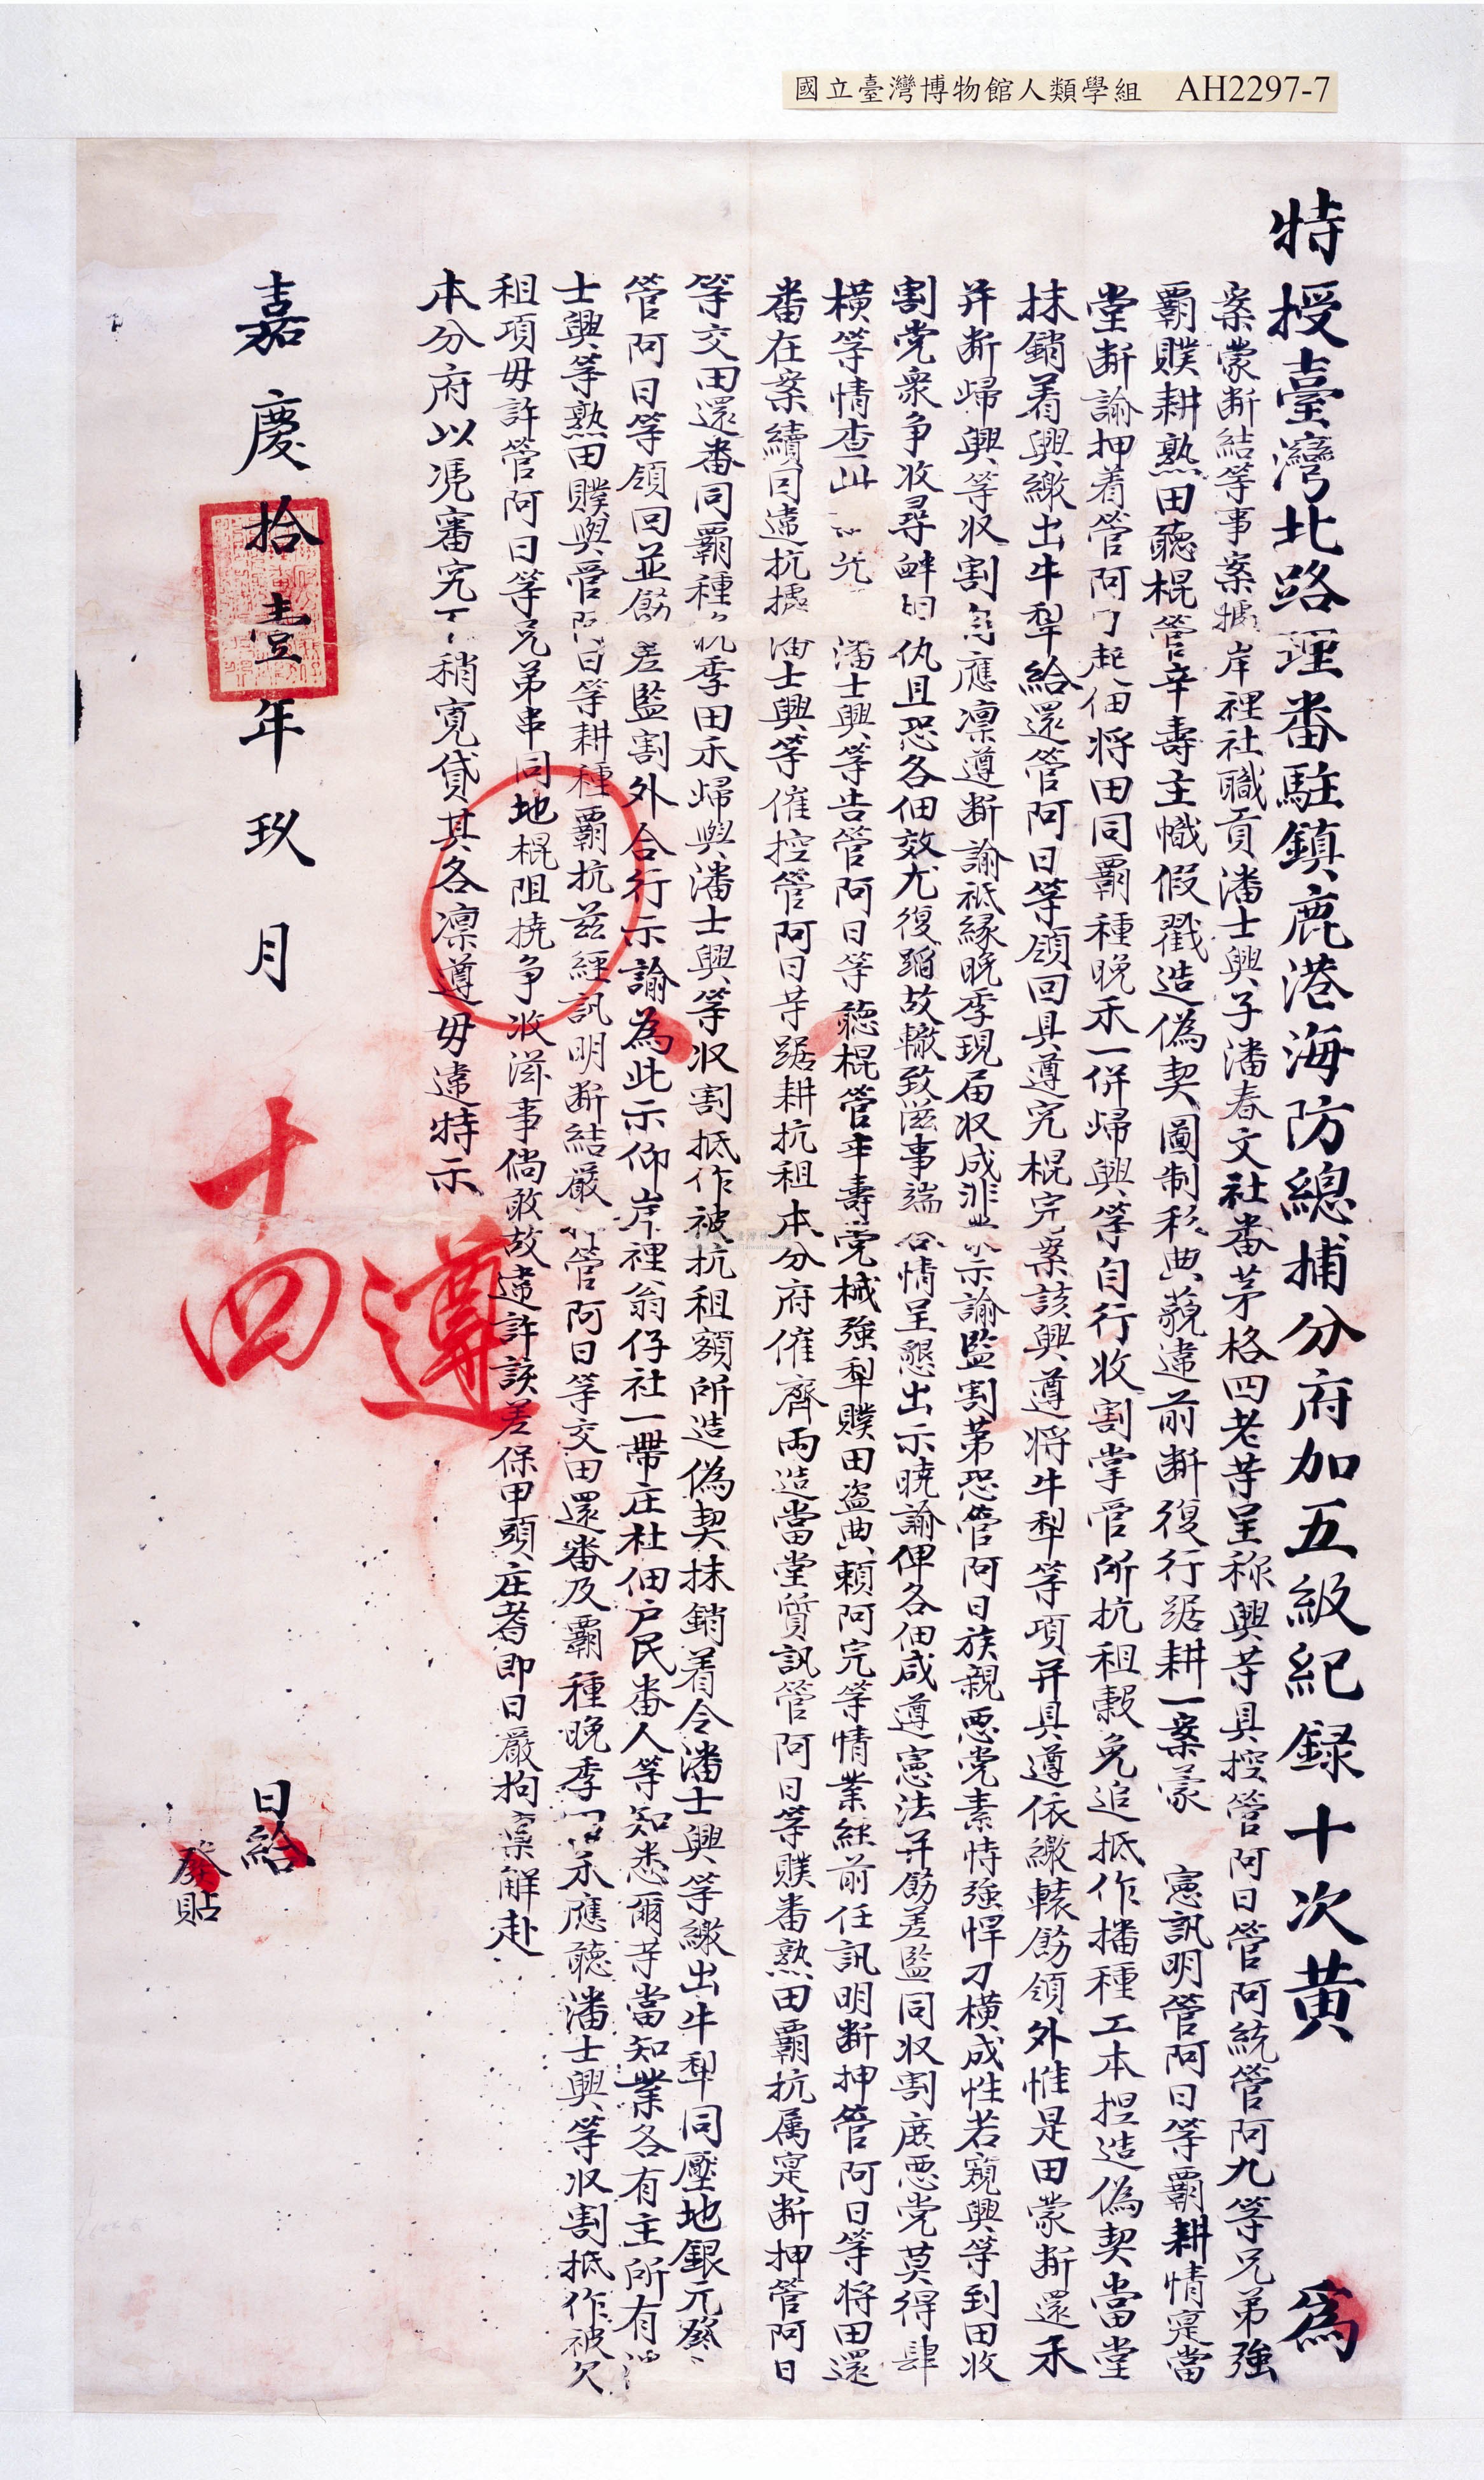 國立臺灣博物館人類學組 AH2297-7
特授臺灣北路理番駐鎮鹿港海防總捕分府加五級紀録十次黃 為
案蒙斷結等事案據岸裡社職貢潘士興子潘春文社番茅格四老等呈称興等具控管阿日管阿統管阿九等兄弟強
霸贌耕熟田聽棍管辛壽主幟假戳造偽契圖制私典藐違前斷復行踞耕一案蒙 憲訊明管阿日等霸耕情寔當
堂斷諭押着管阿日起佃将田同霸種晚禾一併歸興等自行收割掌管所抗租穀免追抵作播種工本揑造偽契當堂
抹銷着興繳出牛犁給還管阿日等領回具遵完棍完案該興遵将牛犁等項并具遵依繳轅飭領外惟是田蒙斷還禾
并斷歸興等收割自應凛遵斷諭祗緣晚季現届收成非蒙示諭監割第恐管阿日族親悪党素恃強悍刁橫成性若窺興等到田收
割党衆争收尋衅 仇且恐各佃效尤復蹈故轍致滋事端合情呈懇出示曉諭俾各佃咸遵憲法并飭差監同收割庶悪党莫得肆
橫等情查此 潘士興等告管阿日等聽棍管辛壽党械強犁贌田盗典賴阿完等情業經前任訊明斷押管阿日等将田還
番在案續因違抗據潘士興等催控管阿日等踞耕抗租本分府催齊両造當堂質訊管阿日等贌番熟田霸抗属寔斷押管阿日
等交田還番同霸種 季田禾歸與潘士興等收割抵作被抗租額所造偽契抹銷着令潘士興等繳出牛犁同壓地銀元發
管阿日等領回並飭差監割外合行示諭為此示仰岸裡翁仔社一帶庄社佃户民番人等知悉爾等當知業各有主所有潘
士興等熟田贌與管阿日等耕種霸抗兹經訊明斷結嚴 管阿日等交田還番及霸種晚季 禾應聽潘士興等收割抵作被欠
租項毋許管阿日等兄弟串同地棍阻撓争收滋事倘敢故違許該差保甲頭庄耆即日嚴拘禀解赴
本分府以凭審究不稍寬貸其各凛遵毋違特示
遵
嘉慶拾壹年玖月 十四 日給
發貼